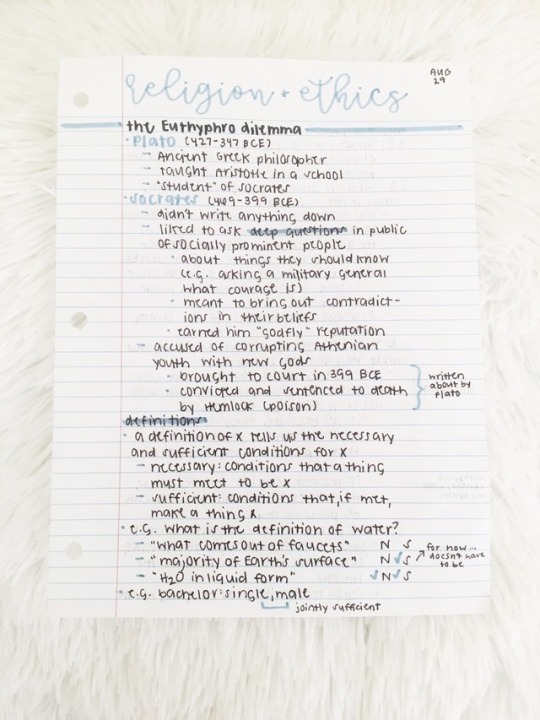 AUG
29
religion + ethics
the Euthyphro dilemma
· Plato (427-347 BCE)
- Ancient Greek philosopher
- taught Aristotle in a school
- "student" of Socrates
· Socrates (469-399 BCE)
- didn't write anything down
- liked to ask deep questions in public
of socially prominent people
· about things they should know
(e.g. asking a military general
what courage is)
· meant to bring out contradict-
ions in their beliefs
· earned him "gadfly" reputation
- accused of corrupting Athenian
youth with new gods
· brought to court in 399 BCE
· convicted and sentenced to death
by Hemlock (poison)
written
about by
Plato
definitions
· a definition of x tells us the necessary
and sufficient conditions for x
- necessary: conditions that a thing
must meet to be x
- sufficient: conditions that, if met,
make a thing x
· e.g. what is the definition of water?
- "what comes out of faucets" N S
- "majority of Earth's surface" N ✓S
- "H2O in liquid form" ✓N ✓S
for now...
doesn't have
to be
· e.g. bachelor: single, male
jointly sufficient